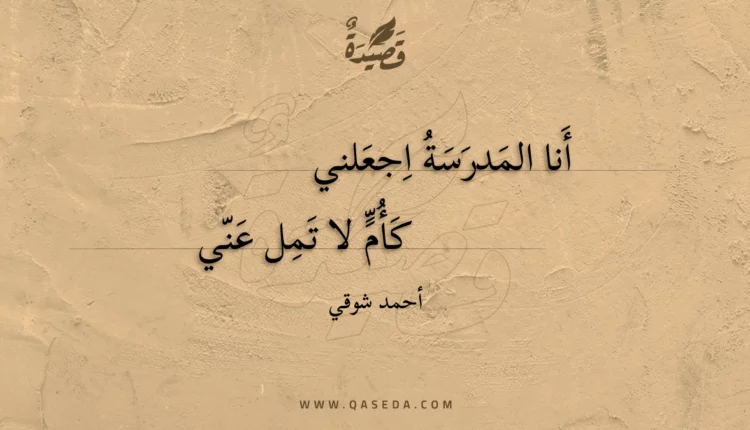 قَصِيدَةٌ
أَنا المَدرَسَةُ اِجعَلني
كَأُمٍّ لا تَمِل عَنّي
أحمد شوقي
WWW.QASEDA.COM